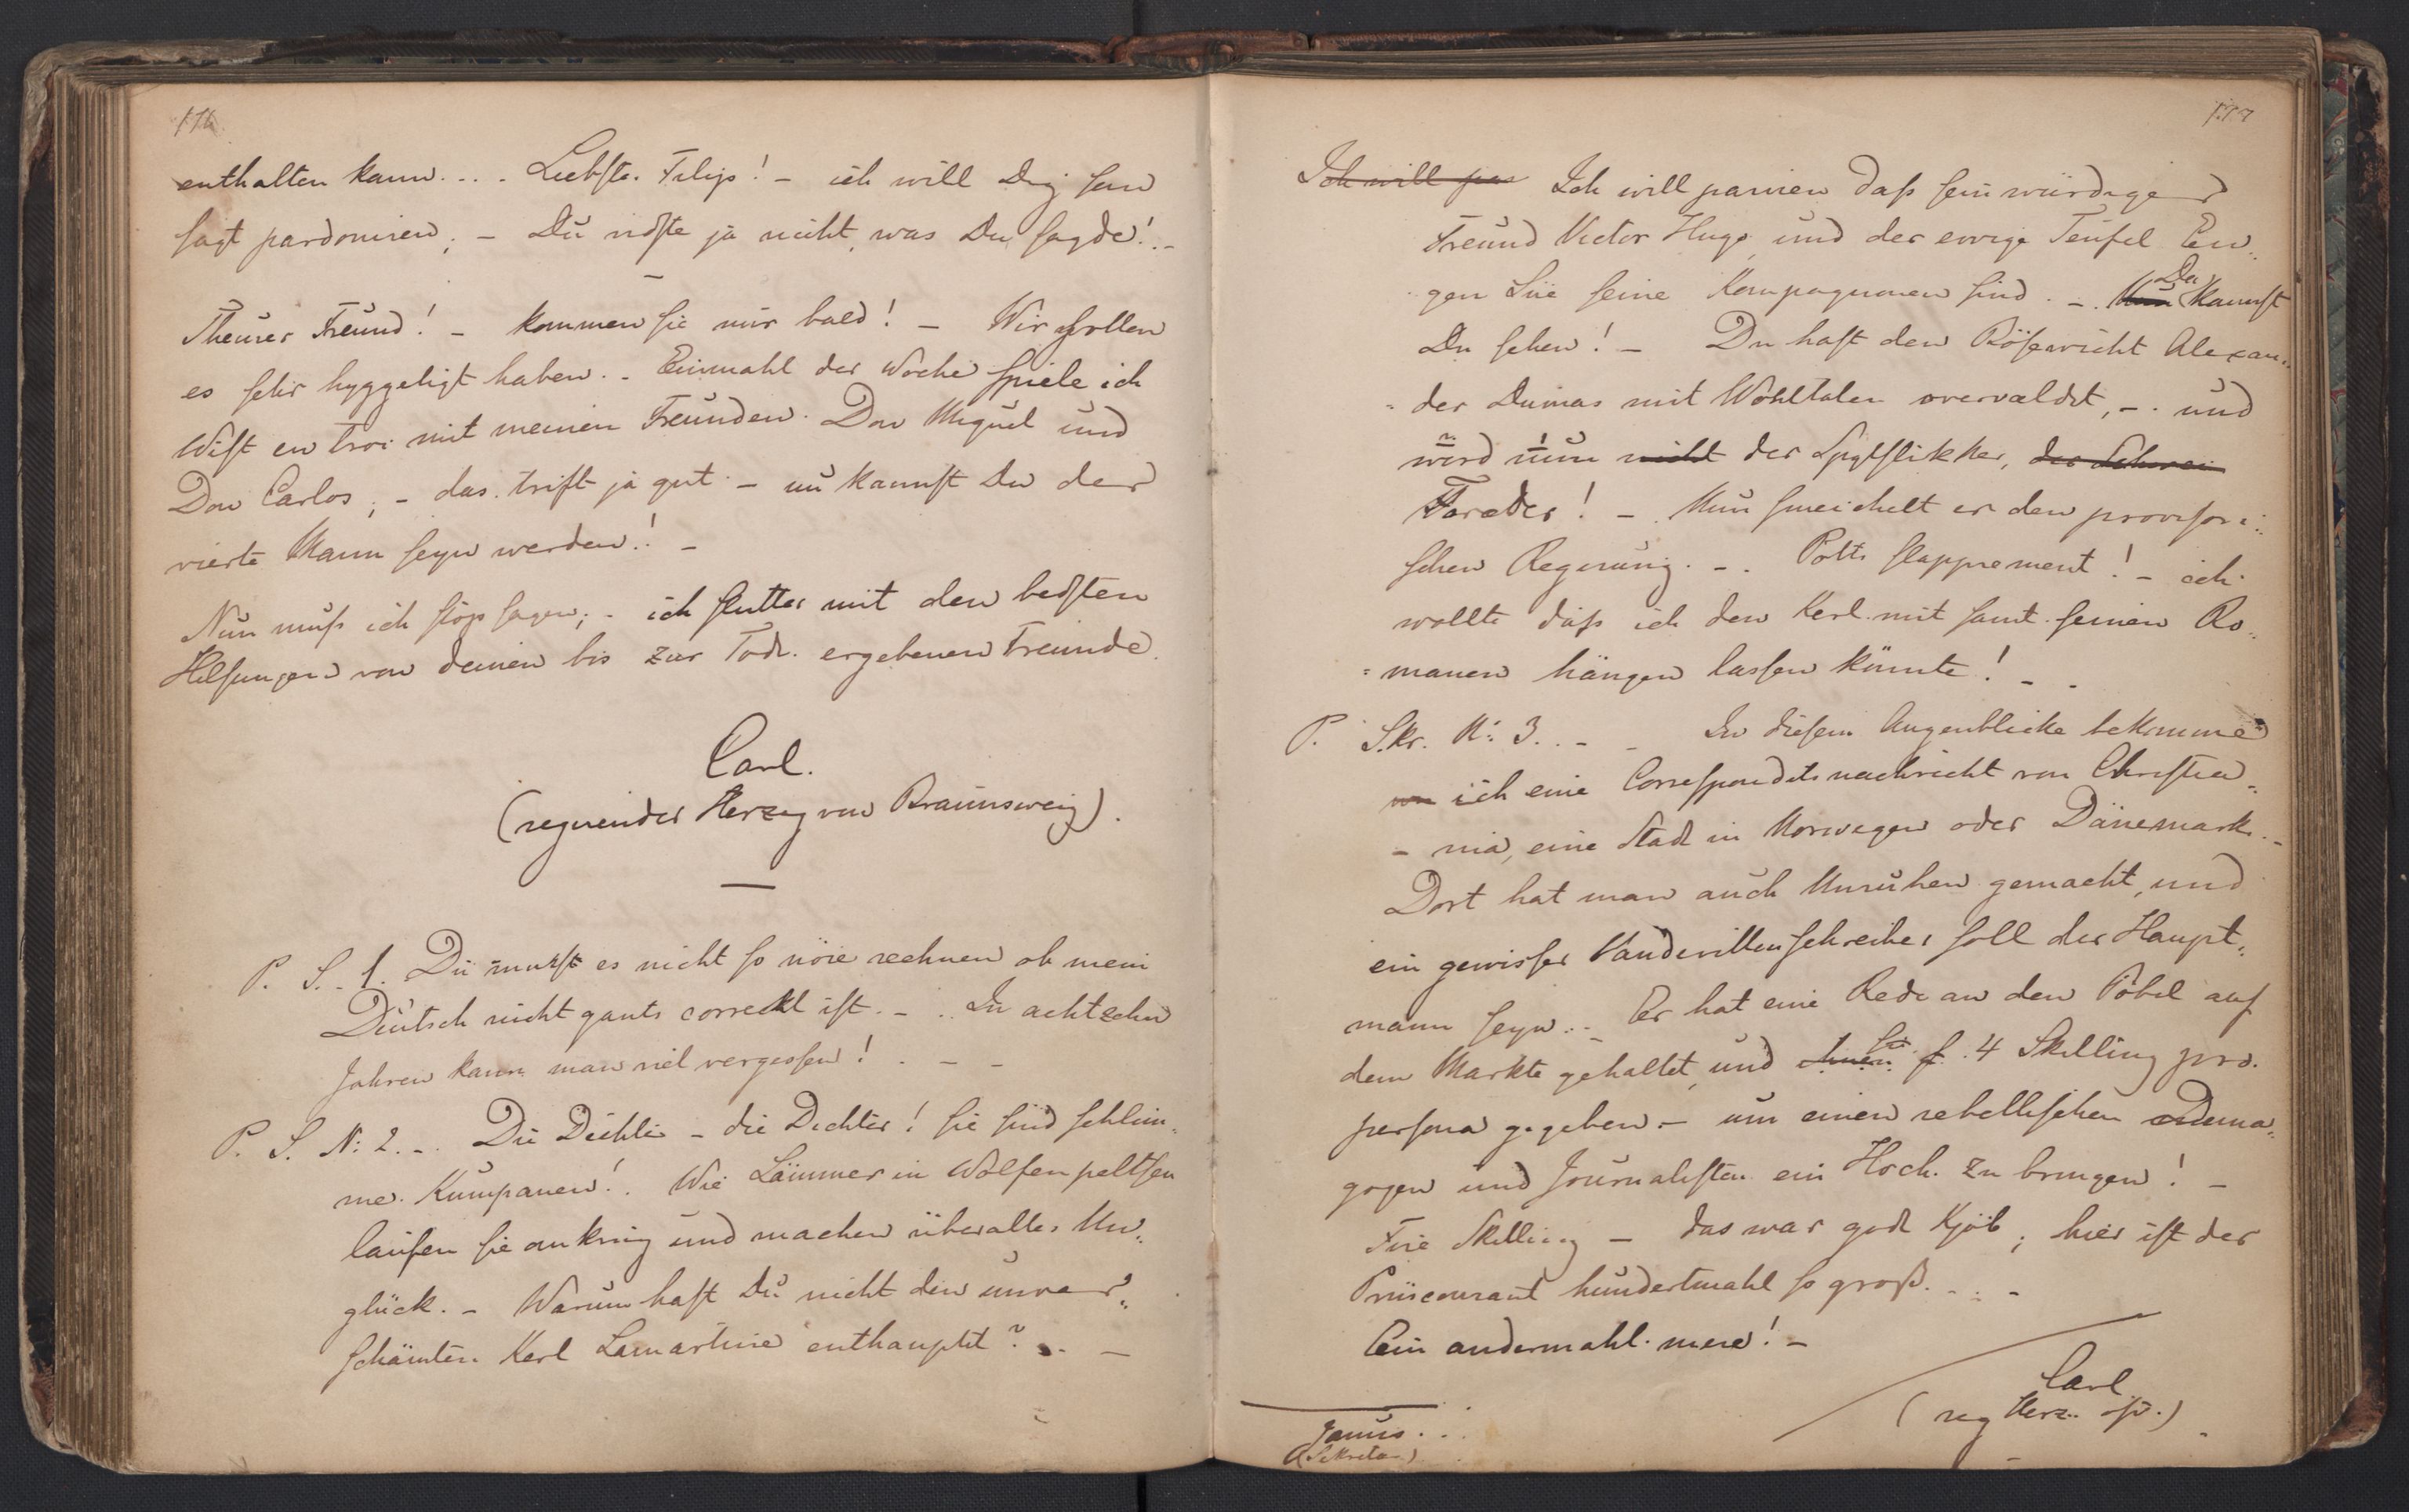 176
enthalten kann. . . . Liebste Filip! – ich will Dig sen
sagt pardoniren; – Du vidste ja nicht, was Du sagde! . –
–
Theurer Freund! – kommen sie nur bald! – Wir sollen
es sehr hyggeligt haben. . Einmahl der Woche spiele ich
Wist en troi mit meinen Freunden Don Miguel und
Don Carlos; – das trift ja gut. – nu kannst Du der
vierte Mann seyn werden! –
Nun muss ich stop sagen; – ich slutter mit den bedsten
Helsungen von deinen bis zur Tode ergebenen Freunde
Carl.
(regirender Herzog von Braunsweig).
P. S. 1. Du musst es nicht so nöie rechnen ob mein
Deutsch nicht gants correckt ist. – . . In achtzehn
Jahren kann man viel vergessen! . – –
P. S. N: 2. –. Die Dichter – die Dichter! sie sind schlim-
me Kumpanen! Wie Lämmer in Wolfenpeltsen
laufen sie omkring und machen überalles Un-
glück. – Warum hast Du nicht den unver-
schämten Kerl Lamartine enthauptet? . . –
177
Ich will pa Ich will parien dass sein würdiger
Freund Victor Hugo und der evvige Teufel Eu-
gen Süe seine Kompagnonen sind. –. Nun Da kannst
Du sehen! – Du hast den Bösewicht Alexan-
der Dumas mit Wohltaten overvældet, –. und
wird nun nicht der Spytslikker, der Schrei
Foræder! –. Nun smeichelt er den provisori-
schen Regerung. –. Potts slapprement! – ich
wollte dass ich den Kerl mit samt seinen Ro-
manen hängen lassen könnte! – –
P. Skr. N: 3. . – – In diesem Augenblicke bekomme
ich eine Correspondetsnachricht von Christia-
nia, eine Stadt in Norwegen oder Dänemark. –
Dort hat man auch Unruhen gemacht, und
ein gewisser Vaudevillenschreiber soll der Haupt-
mann seyn. . – Er hat eine Rede an den Pöbel auf
dem Markte gehaltet, und 4 Skilling pro.
persona gegeben – um einen rebellischen Dema-
gogen und Journalisten ein Hoch zu bringen! –
Fire Skilling – das war godt Kjöb; hier ist der
Priiscourant hundertmahl so groß. . . –
Ein andermahl mere! –
Carl
(reg Herz. osv.)
Janus. . .
(Sekretær)